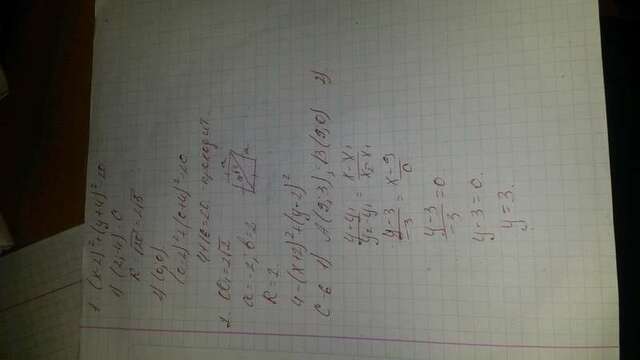 1. (x-2)²+(y+4)²=20
1) (2;-4)-O
R=√20=2√5
2) (0;0)
(0-2)²+(0+4)²=20
4+16=20 - проходит.
2. OO₁=2√2
a=-2; b=2
R=2
4=(x+2)²+(y-2)²
a
a
a√2
С-6 1) A(9;3); B(9;0) 2)
y-y₁/y₂-y₁ = x-x₁/x₂-x₁
y-3/-3 = x-9/0
y-3/-3 = 0
y-3=0.
y=3.